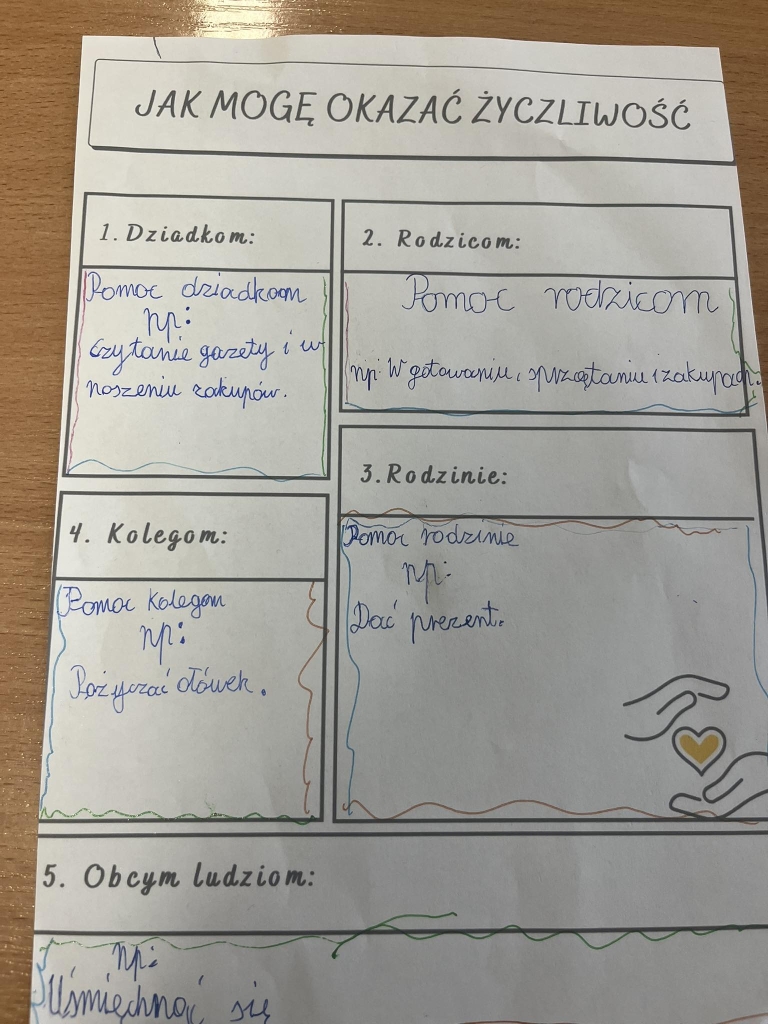 JAK MOGĘ OKAZAĆ ŻYCZLIWOŚĆ
1. Dziadkom:
Pomoc dziadkom
np:
Czytanie gazety i w
noszeniu zakupów.
2. Rodzicom:
Pomoc rodzicom
np: W gotowaniu, sprzątaniu i zakupach.
3. Rodzinie:
Pomoc rodzinie
np:
Dać prezent.
4. Kolegom:
Pomoc kolegom
np:
Pożyczać ołówek.
5. Obcym ludziom:
np:
Uśmiechnąć się